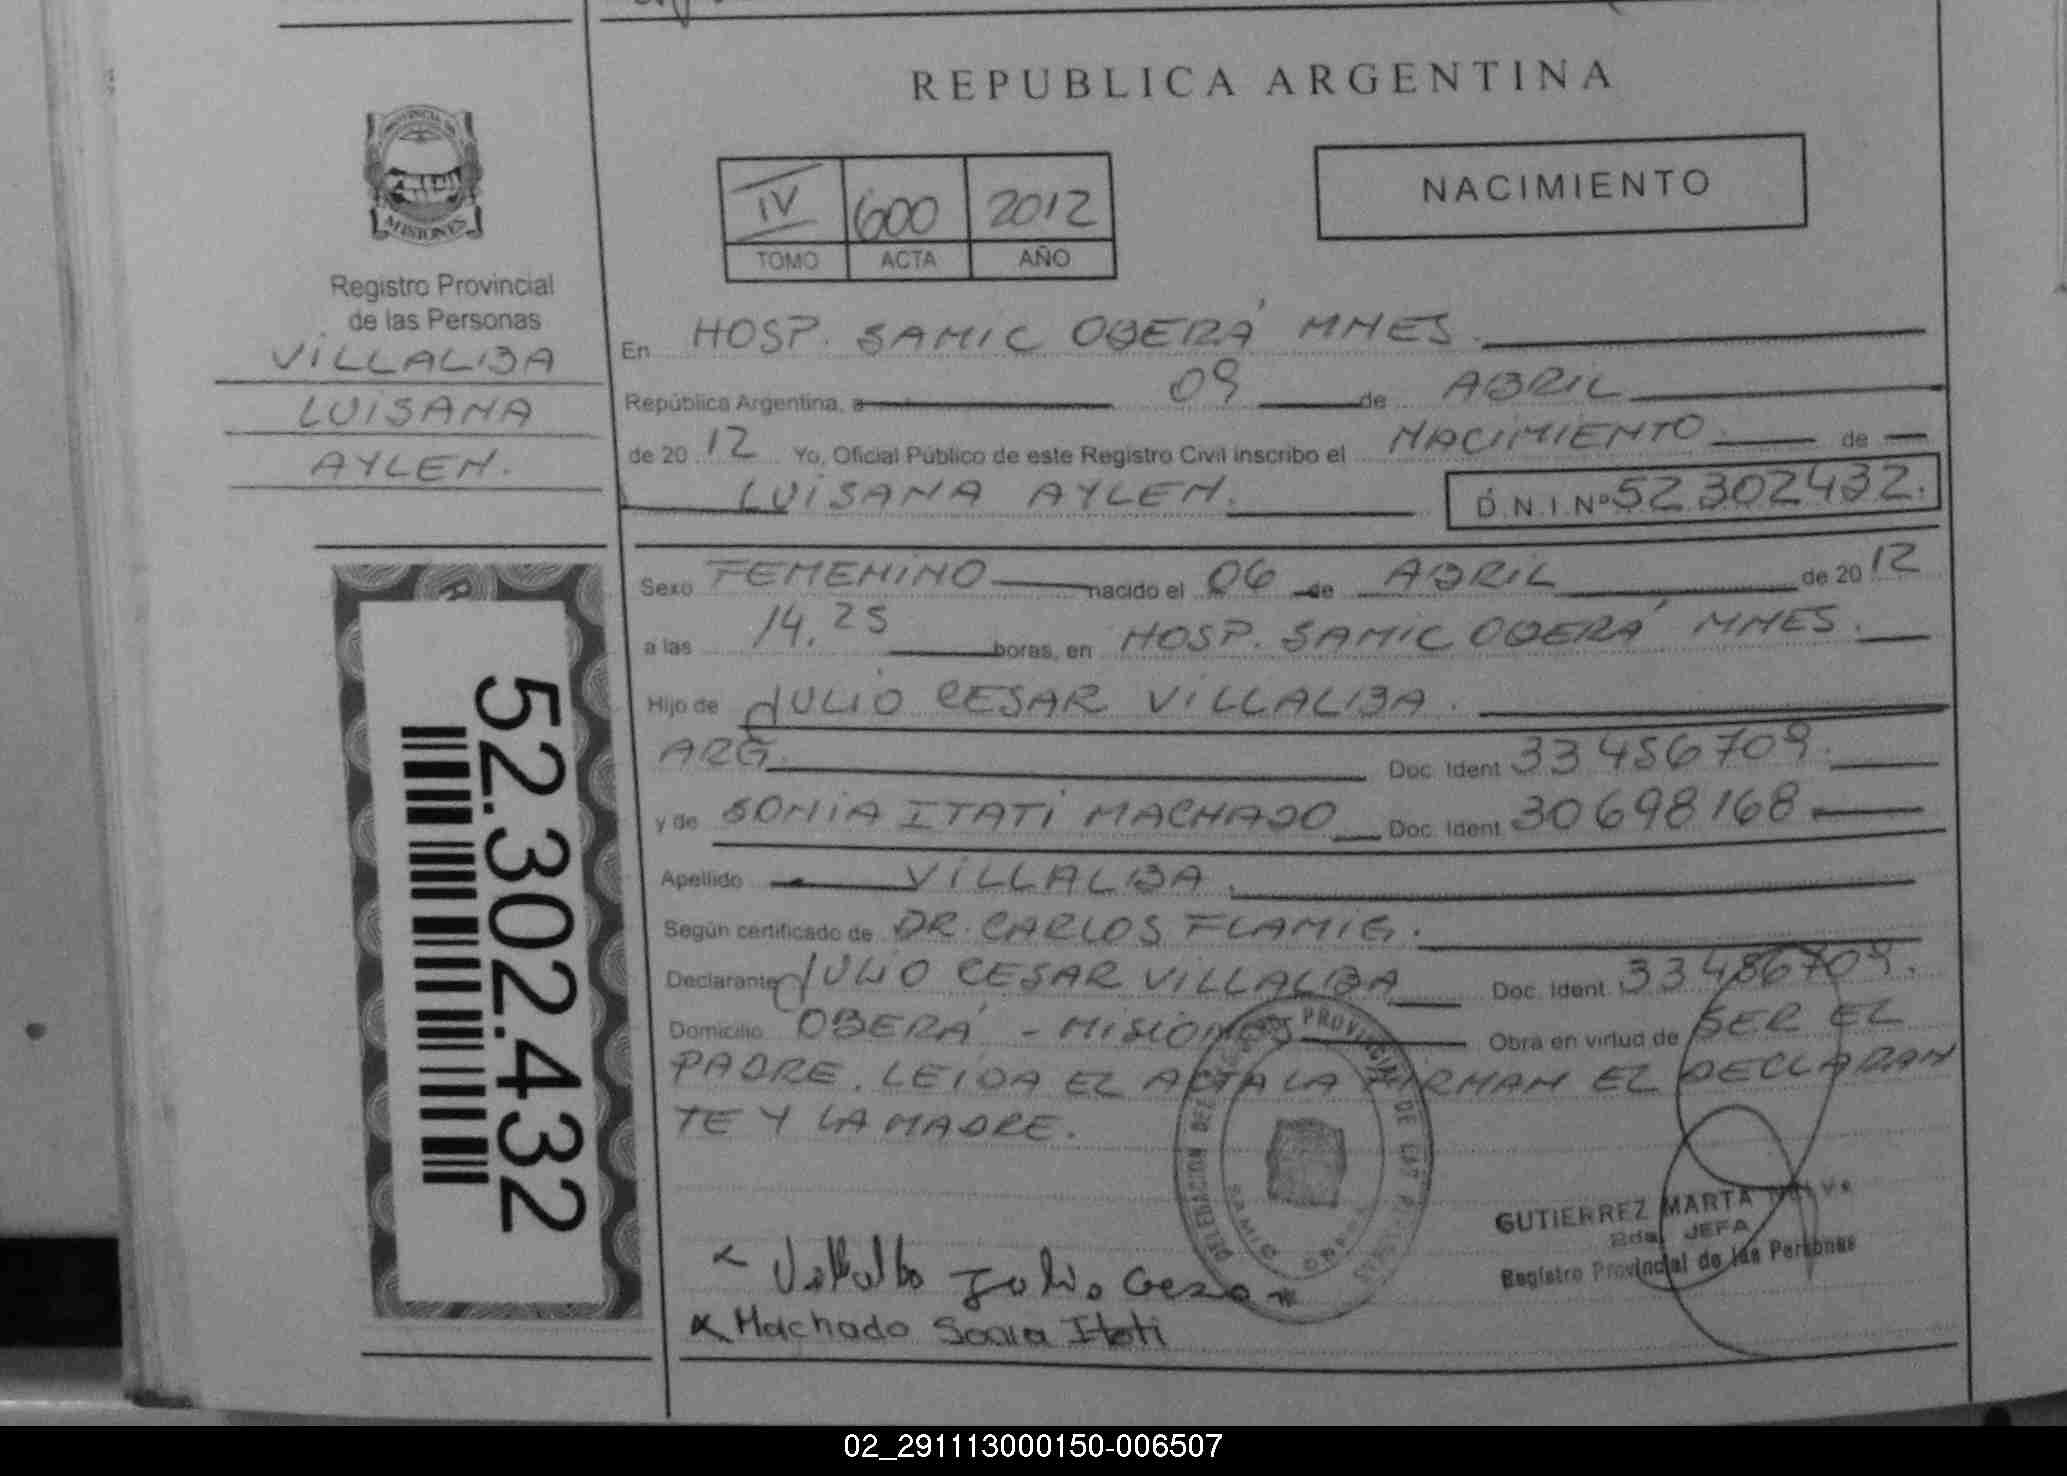 REPUBLICA ARGENTINA
PROVINCIA DE
MISIONES
Registro Provincial
de las Personas
VILLALBA
LUISANA
AYLEN.
IV 600 2012
TOMO ACTA AÑO
NACIMIENTO
En HOSP. SAMIC OBERÁ MNES.
República Argentina, a 09 de ABRIL
de 20 12 Yo, Oficial Público de este Registro Civil inscribo el NACIMIENTO de
LUISANA AYLEN. D.N.I.Nº 52.302432.
Sexo FEMENINO nacido el 06 de ABRIL de 20 12
a las 14.25 horas, en HOSP. SAMIC OBERÁ MNES.
Hijo de JULIO CESAR VILLALBA.
ARG. Doc. Ident 33456709.
y de SONIA ITATI MACHADO Doc. Ident. 30698168
Apellido VILLALBA.
Según certificado de DR. CARLOS FLAMIG.
Declarante JULIO CESAR VILLALBA Doc. Ident. 33456709.
Domicilio OBERÁ - MISIONES Obra en virtud de SER EL
PADRE. LEIDA EL ACTA LA FIRMAN EL DECLARAN
TE Y LA MADRE.
52.302.432
DELEGACION DEL REGISTRO PROVINCIAL DE LAS PERSONAS
SAMIC OBERA
GUTIERREZ MARTA
2da. JEFA
Registro Provincial de las Personas
x Villalba Julio Cesar
x Machado Sonia Itati
02_291113000150-006507